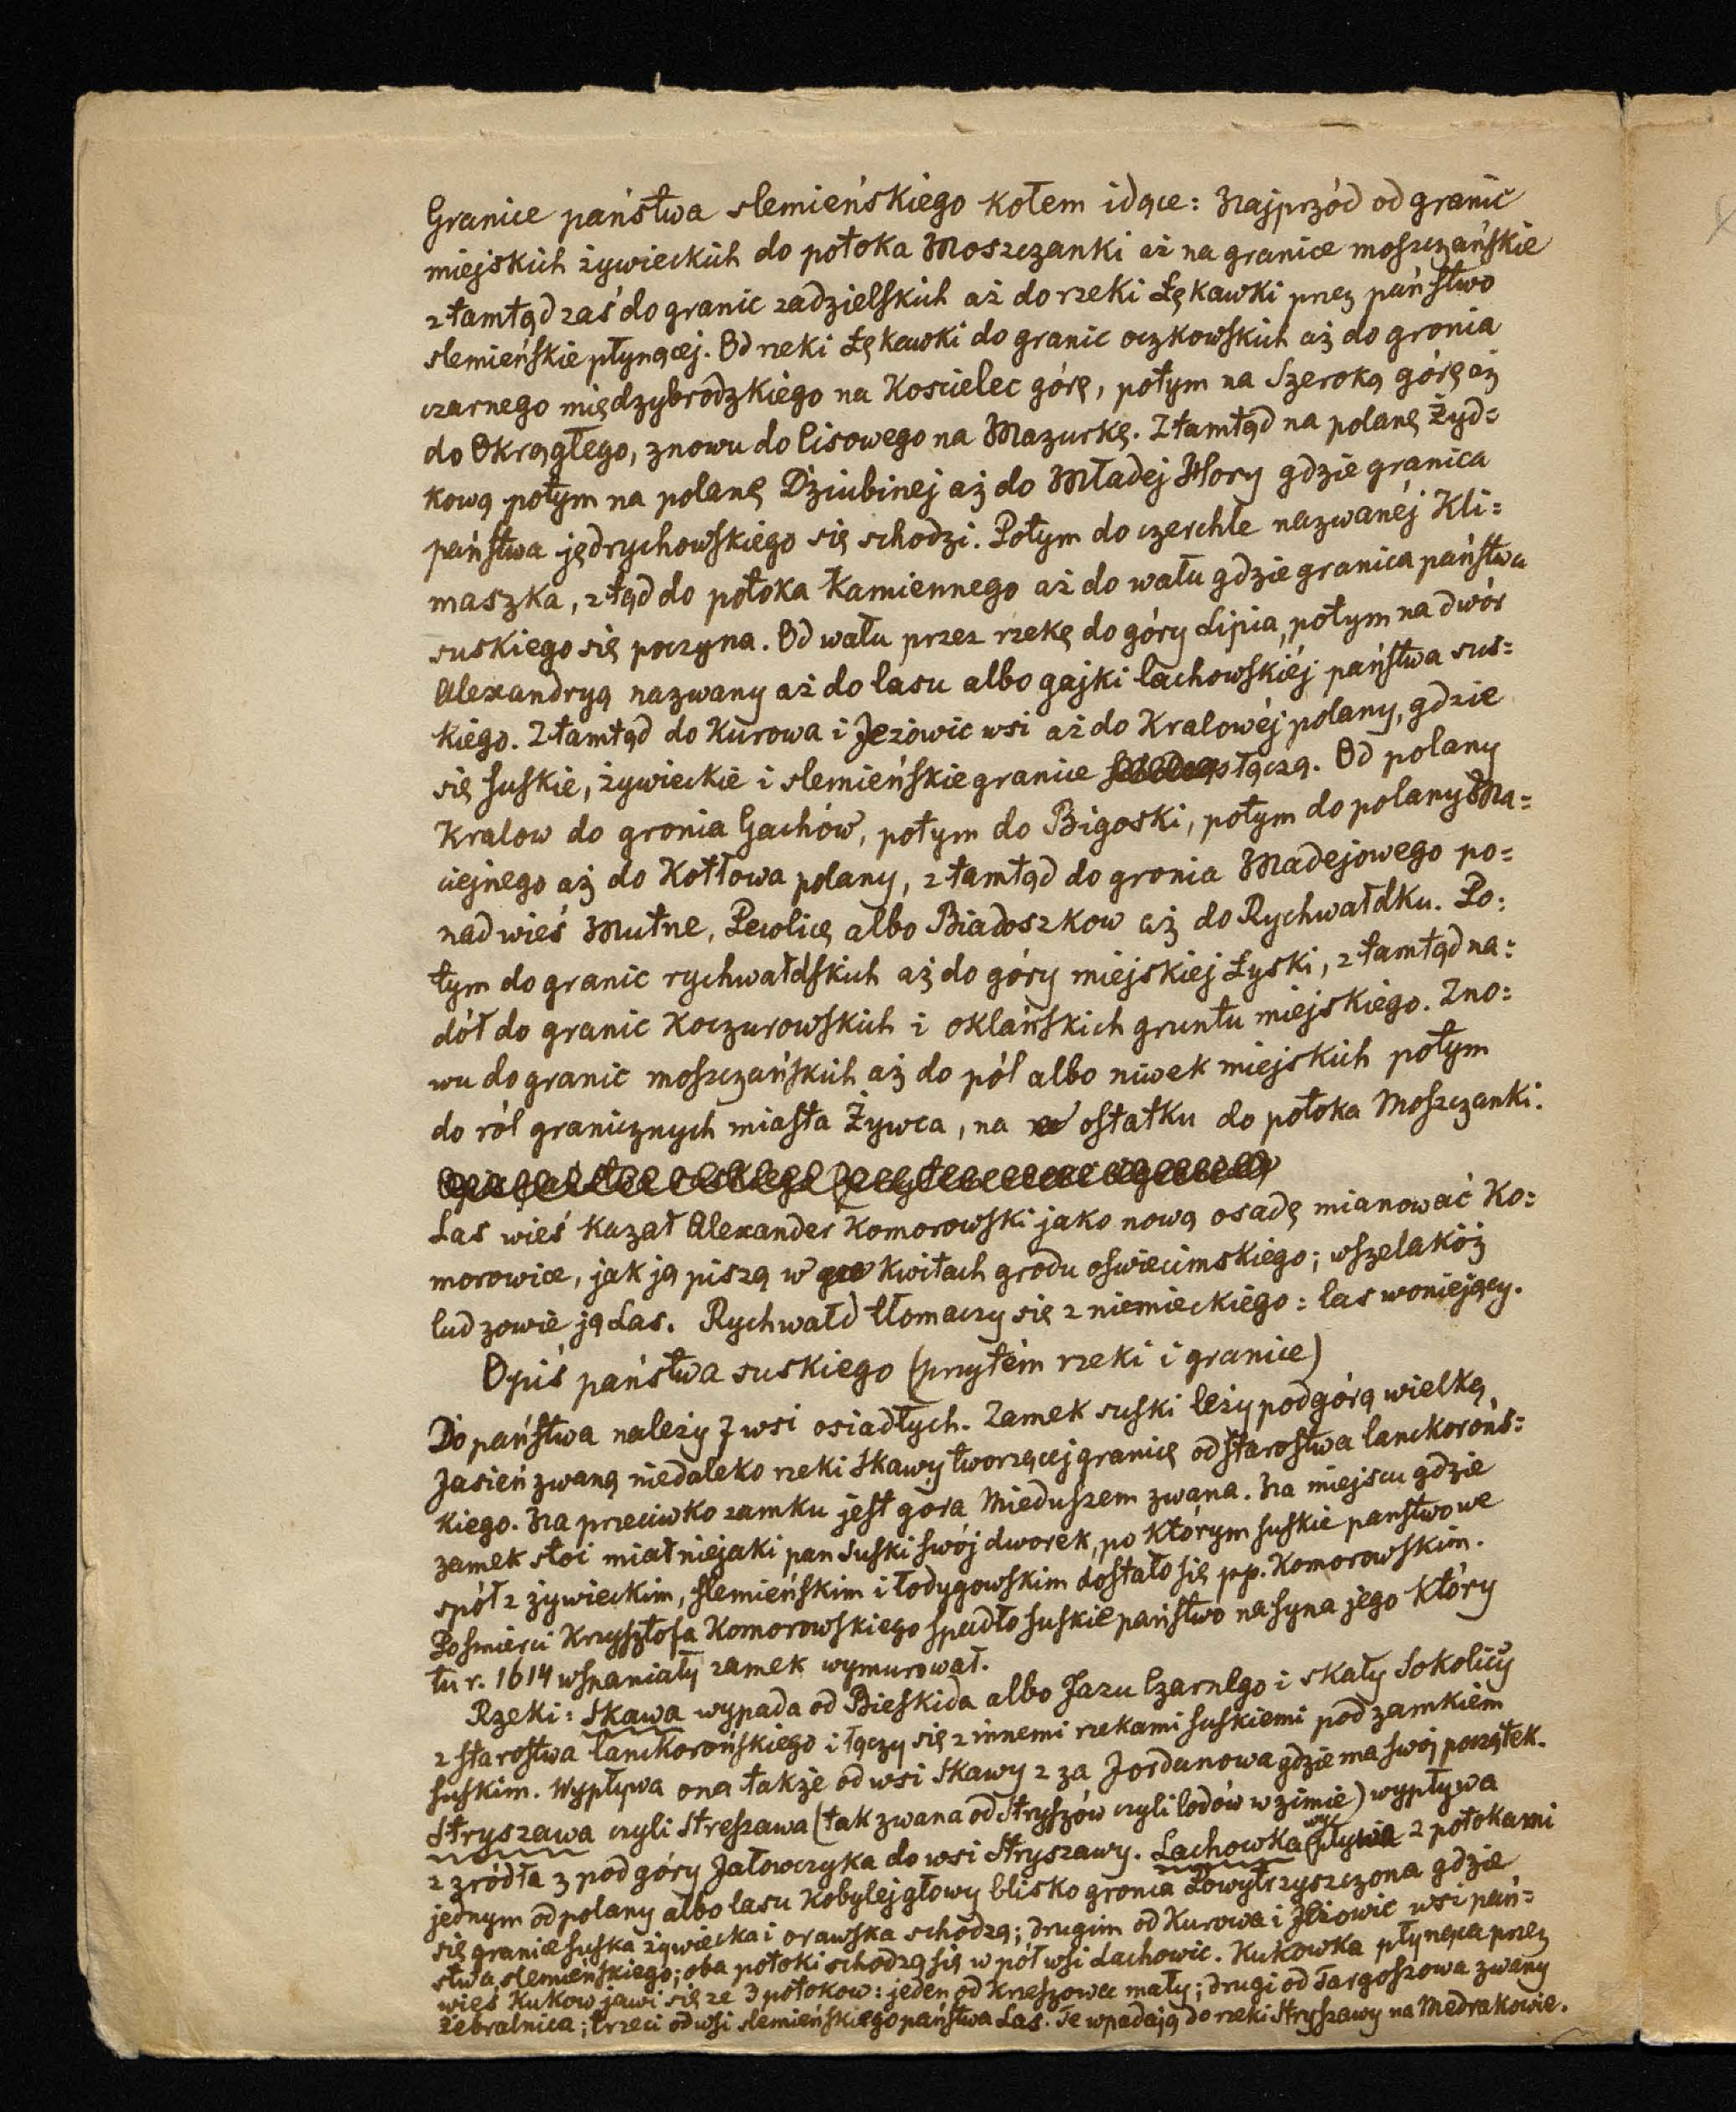 Granice państwa slemieńskiego kołem idące: Najprzód od granic
miejskich żywieckich do potoka Moszczanki aż na granice moszczańskie
ztamtąd zaś do granic zadzielskich aż do rzeki Łękawki przez państwo
slemieńskie płynącej. Od rzeki Łękawki do granic oczkowskich aż do gronia
czarnego międzybrodzkiego na Kościelec górę, potym na Szeroką górę aż
do Okrągłego, znowu do Lisowego na Mazurkę. Ztamtąd na polanę Żyd=
kową potym na polanę Dziubinej aż do Mładej Hory gdzie granica
państwa jędrychowskiego się schodzi. Potym do czerchle nazwanéj Kli=
maszka, ztąd do potoka Kamiennego aż do wału gdzie granica państwa
suskiego się poczyna. Od wału przez rzekę do góry Lipia, potym na dwór
Alexandryą nazwany aż do lasu albo gajki lachowskiéj państwa sus=
kiego. Ztamtąd do Kurowa i Jeżowic wsi aż do Kralowéj polany, gdzie
się suskie, żywieckie i slemieńskie granice łączą. Od polany
Kralow do gronia Gachów, potym do Bigoski, potym do polany Ma=
ciejnego aż do Kotłowa polany, ztamtąd do gronia Madejowego po=
nad wieś Mutne, Pewlicę albo Biadoszkow aż do Rychwałdku. Po=
tym do granic rychwałdskich aż do góry miejskiej Łyski, ztamtąd na=
dół do granic Koczurowskich i oklańskich gruntu miejskiego. Zno=
wu do granic moszczańskich aż do pól albo niwek miejskich potym
do ról granicznych miasta Żywca, na ostatku do potoka Moszczanki.
Las wieś kazał Alexander Komorowski jako nową osadę mianować Ko=
morowice, jak ją piszą w kwitach grodu oświecimskiego; wszelakóż
lud zowie ją Las. Rychwałd tłomaczy się z niemieckiego: las woniejący.
Opis państwa suskiego (przytém rzeki i granice)
Do państwa należy 7 wsi osiadłych. Zamek suski leży pod górą wielką
Jasień zwaną niedaleko rzeki Skawy tworzącej granicę od starostwa lanckorońs=
kiego. Na przeciwko zamku jest gora Mieduszem zwana. Na miejscu gdzie
zamek stoi miał niejaki pan Suski swój dworek, po którym suskie panstwo we
spół z żywieckim, slemieńskim i łodygowskim dostało się pp. Komorowskim.
Po śmierci Krzysztofa Komorowskiego spadło suskie państwo na syna jego który
tu r. 1614 wspaniały zamek wymurował.
Rzeki: Skawa wypada od Bieskida albo Jazu Czarnego i skały Sokolicy
z starostwa lanckorońskiego i łączy się z innemi rzekami suskiemi pod zamkiem
suskim. Wypływa ona także od wsi Skawy z za Jordanowa gdzie ma swój początek.
Stryszawa czyli Streszawa (tak zwana od stryszów czyli lodów w zimie) wypływa
z źródła z pod góry Jałowczyka do wsi Stryszawy. Lachowka wypływa z potokami
jednym od polany albo lasu Kobylej głowy blisko gronia Łowytrzyszczona gdzie
się granie suska żywiecka i orawska schodzą; drugim od Kurowa i Jeżowic wsi pań=
stwa slemieńskiego; oba potoki schodzą się w pół wsi Lachowic. Kukowka płynąca przez
wieś Kukow jawi się ze 3 potokow: jeden od Krzeszowa mały; drugi od Targoszowa zwany
Żebralnica; trzeci od wsi slemieńskiego państwa Las. Te wpadają do rzeki Stryszawy na Mędrakowie.